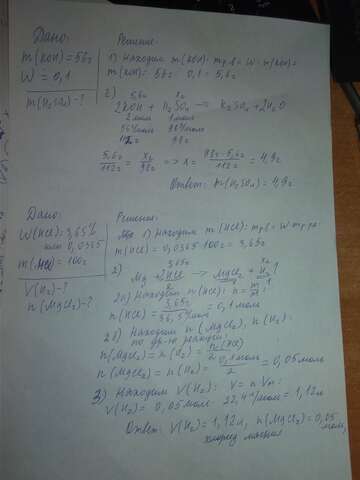 Дано:
m(KOH)=56г
W=0,1
m(H2SO4)-?
Решение:
1) Находим m(KOH): mр.в = W·m(KOH)=
m(KOH)= 56г · 0,1 = 5,6г
2)
5,6г xг
2KOH + H2SO4 → K2SO4 + 2H2O
2 моль 1 моль
56г/моль 98г/моль
112г 98г
5,6г/112г = xг/98г => x = 98г·5,6г/112г = 4,9г
Ответ: m(H2SO4) = 4,9г
Дано:
W(HCl)=3,65%
или 0,0365
m(HCl)=100г
V(H2)-?
n(MgCl2)-?
Решение:
1) Находим m(HCl): mр.в = W·mр-ра:
m(HCl) = 0,0365·100г = 3,65г
2)
3,65г xл
Mg + 2HCl → MgCl2 + H2↑
2 1 1
2а) Находим n(HCl): n = m/M:
n(HCl) = 3,65г/36,5г/моль = 0,1моль
2б) Находим n(MgCl2), n(H2):
по ур-ю реакции:
n(MgCl2) = n(H2) = n(HCl)/2
n(MgCl2) = n(H2) = 0,1моль/2 = 0,05моль
3) Находим V(H2): V = n·Vm:
V(H2) = 0,05моль · 22,4л/моль = 1,12л
Ответ: V(H2) = 1,12л, n(MgCl2) = 0,05
моль,
хлорид магния